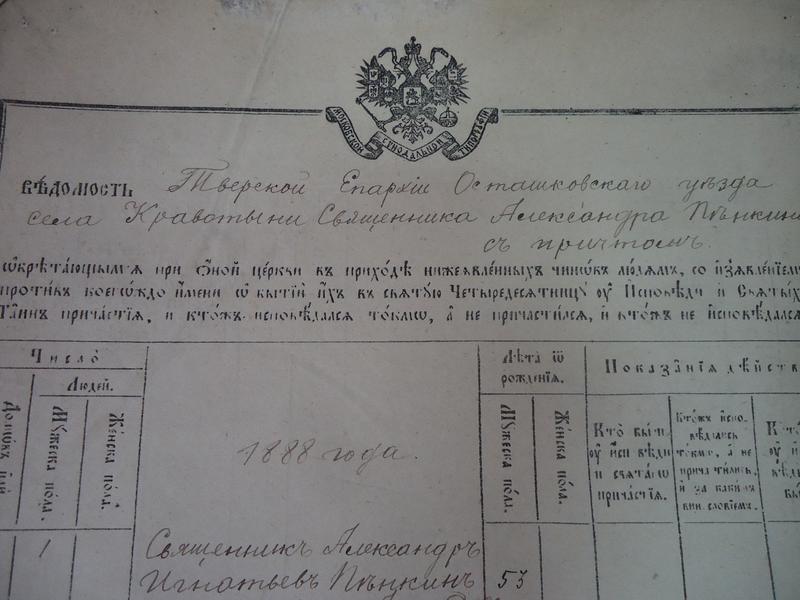 МОСКОВСКОЙ СѴНОДАЛЬНОЙ ТИПОГРАФІИ
ВѢДОМОСТЬ Тверской Епархіи Осташковскаго уѣзда
села Кравотыни Священника Александра Пѣнкина
съ причтомъ.
ѡбрѣта́ющымсѧ при о́ной це́ркви въ прихо́дѣ нижеѧвле́нныхъ чинѡ́въ лю́дѧмъ, со из̾ѧвле́нїемъ
противъ коегѡ́ждо и́мени ѡ бытїи́ и́хъ въ свѧту́ю Четыредесѧ́тницу оу҆ И҆сповѣди и҆ Свѧты́хъ
Та́инъ причастїѧ, и кто́жъ исповѣдалсѧ то́кмѡ, а҆ не причастилсѧ, и҆ кто́жъ не и҆сповѣдалсѧ
Число̀
Людей.
Домѡвъ
Мꙋжеска по́лꙋ.
Же́нска по́лꙋ.
1888 года.
Лѣ́та ѿ рожде́нїѧ.
Мꙋжеска по́ла.
Же́нска по́ла.
Показа́нїѧ дѣ́йств
Кто̀ бы́ли
оу҆ и҆сповѣди
и свѧта́гѡ
прича́стїѧ.
Кто́жъ испо-
вѣдались
то́кмѡ, а҆ не
причатились,
и҆ за каки́мъ
винословїемъ.
1
Священникъ Александръ
Игнатьевъ Пѣнкинъ 53